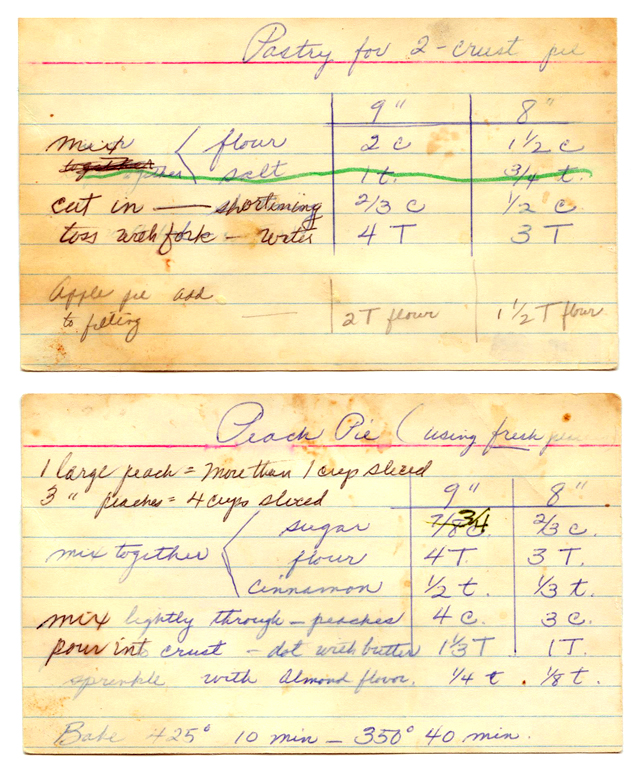 Pastry for 2-crust pie
9" 8"
mix flour 2 c 1 1/2 c
together salt 1 t. 3/4 t.
cut in — shortining 2/3 c 1/2 c
toss with fork — water 4 T 3 T
Apple pie add
to filling — 2 T flour 1 1/2 T flour
Peach Pie (using fresh
1 large peach = more than 1 cup sliced
3 " peaches = 4 cups sliced
9" 8"
sugar 7/8 c. 3/4 2/3 c.
mix together flour 4 T. 3 T.
cinnamon 1/2 t. 1/3 t.
mix lightly through — peaches 4 c. 3 c.
pour into crust — dot with butter 1 1/3 T 1 T.
sprinkle with Almond flavor. 1/4 t. 1/8 t.
Bake 425° 10 min — 350° 40 min.